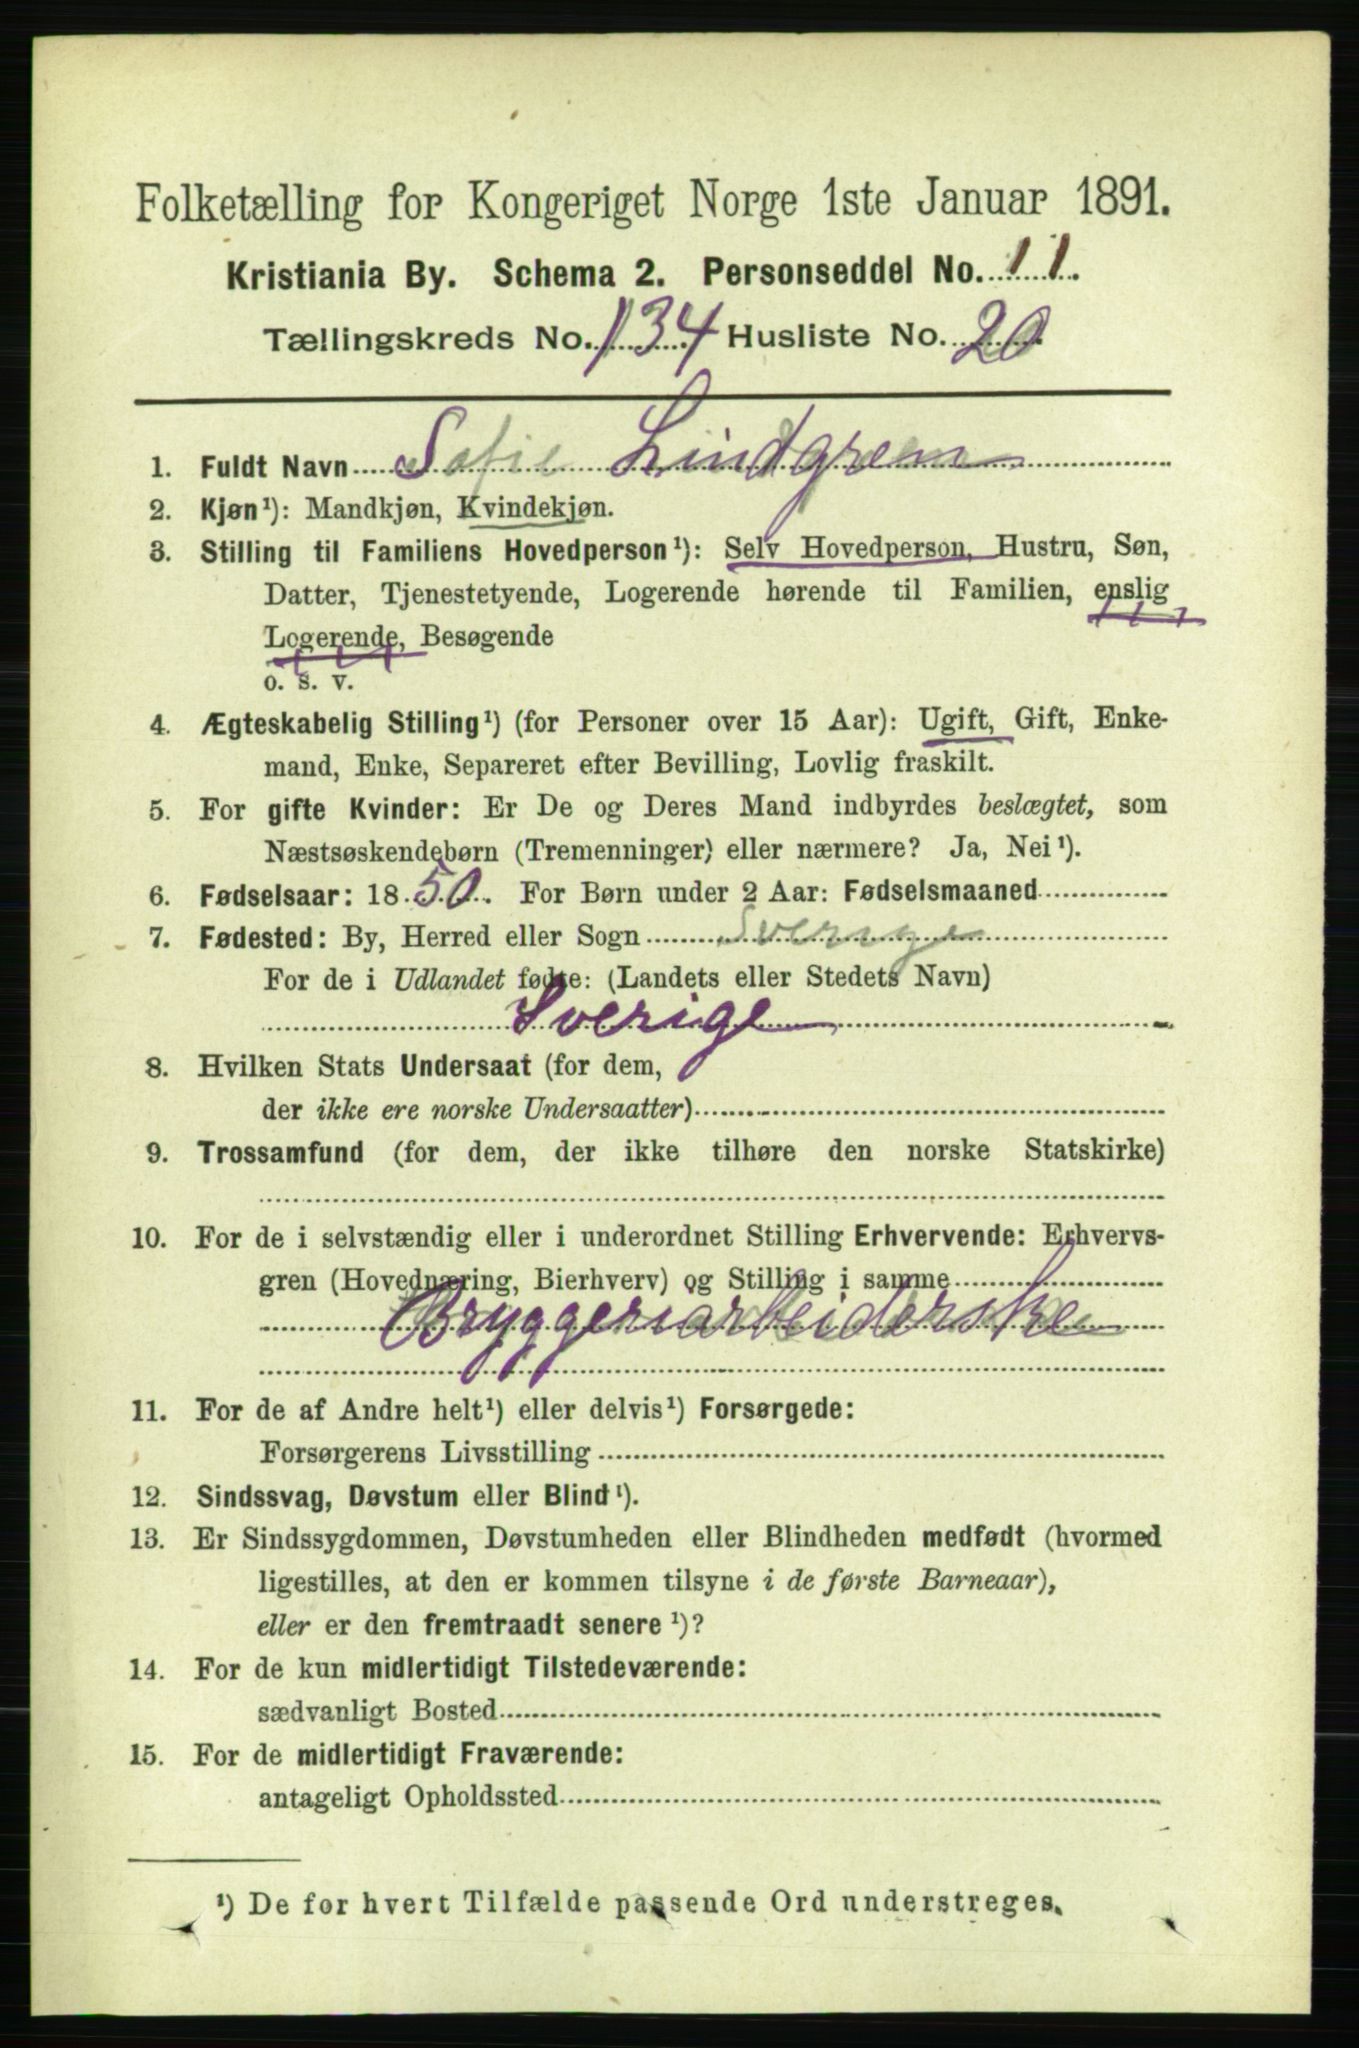 Folketælling for Kongeriget Norge 1ste Januar 1891.
Kristiania By. Schema 2. Personseddel No. 11.
Tællingskreds No. 134 Husliste No. 20.
1. Fuldt Navn Sofie Lindgren
2. Kjøn¹): Mandkjøn, Kvindekjøn.
3. Stilling til Familiens Hovedperson¹): Selv Hovedperson, Hustru, Søn,
Datter, Tjenestetyende, Logerende hørende til Familien, enslig
Logerende, Besøgende
o. s. v.
4. Ægteskabelig Stilling¹) (for Personer over 15 Aar): Ugift, Gift, Enke-
mand, Enke, Separeret efter Bevilling, Lovlig fraskilt.
5. For gifte Kvinder: Er De og Deres Mand indbyrdes beslægtet, som
Næstsøskendebørn (Tremenninger) eller nærmere? Ja, Nei¹).
6. Fødselsaar: 1850. For Børn under 2 Aar: Fødselsmaaned
7. Fødested: By, Herred eller Sogn Sverige
For de i Udlandet fødte: (Landets eller Stedets Navn)
Sverige
8. Hvilken Stats Undersaat (for dem,
der ikke ere norske Undersaatter)
9. Trossamfund (for dem, der ikke tilhøre den norske Statskirke)
10. For de i selvstændig eller i underordnet Stilling Erhvervende: Erhvervs-
gren (Hovednæring, Bierhverv) og Stilling i samme
Bryggeriarbeiderske
11. For de af Andre helt¹) eller delvis¹) Forsørgede:
Forsørgerens Livsstilling
12. Sindssvag, Døvstum eller Blind¹).
13. Er Sindssygdommen, Døvstumheden eller Blindheden medfødt (hvormed
ligestilles, at den er kommen tilsyne i de første Barneaar),
eller er den fremtraadt senere¹)?
14. For de kun midlertidigt Tilstedeværende:
sædvanligt Bosted
15. For de midlertidigt Fraværende:
antageligt Opholdssted
¹) De for hvert Tilfælde passende Ord understreges.